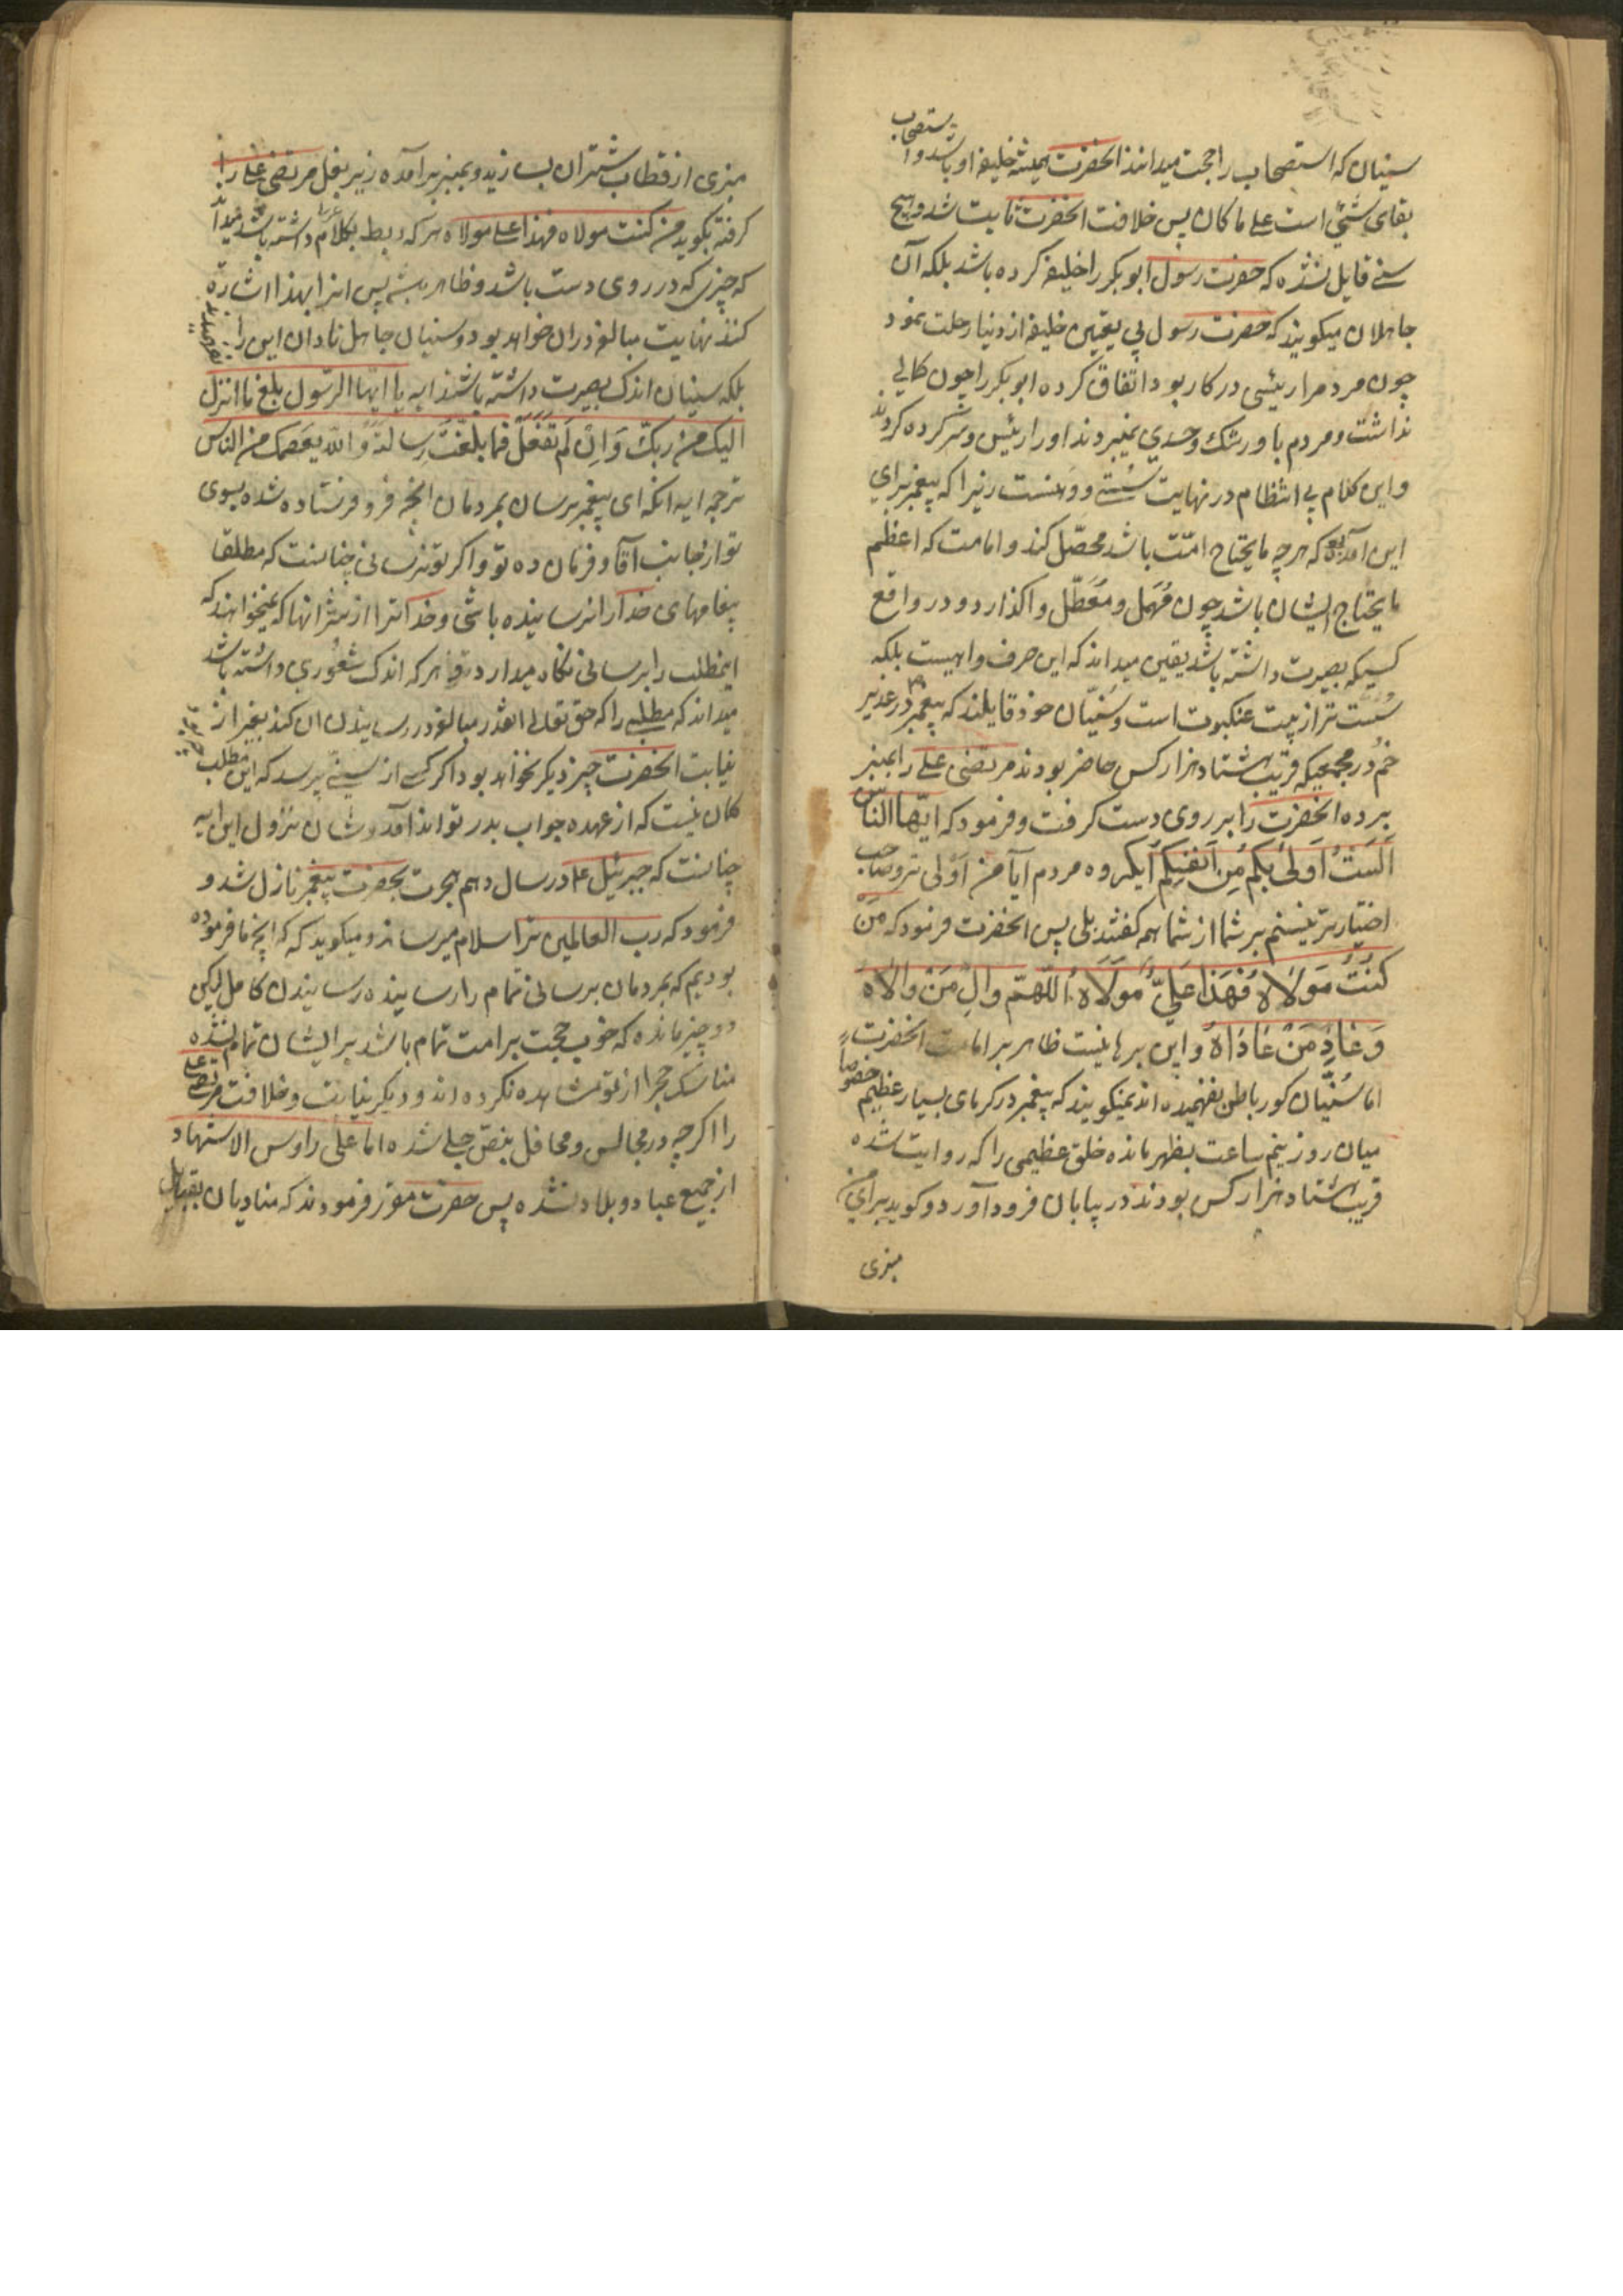 سنیان که استصحاب را حجت میدانند انحضرت همیشه خلیفه او باشد و استصحاب
بقای شئ است علی ما کان پس خلافت انحضرت ثابت شد و هیچ
سنی قایل نشده که حضرت رسول ابوبکر را خلیفه کرده باشد بلکه آن
جاهلان میکویند که حضرت رسول بی تعیین خلیفه از دنیا رحلت نمود
چون مردم را رئیسی در کار بود اتفاق کرده ابوبکر را چون کمالی
نداشت و مردم باو رشک و حسدی نمیبردند او را رئیس و سرکرده کردند
و این کلام بی انتظام در نهایت سستی و وهنست زیرا که پیغمبر برای
این آمده که هر چه ما یحتاج امّت باشد محصّل کند و امامت که اعظم
ما یحتاج ایشان باشد چون مُهمل و مُعَطّل واکذارد و در واقع
کسیکه بصیرت داشته باشد یقین میداند که این حرف واهیست بلکه
سُست تر از بیت عنکبوت است و سُنیّان خود قایلند که پیغمبر در غدیر
خُم در مجمعیکه قریب هشتاد هزار کس حاضر بودند مرتضی علی را بمنبر
برده انحضرت را بر روی دست کرفت و فرمود که ایّها النّاس
اَلَستُ اَولیٰ بکم مِن اَنفسِکم ایکروه مردم آیا من اَوْلی تر و صاحب
اختیارتر نیستم بر شما از شما همه کفتند بلی پس انحضرت فرمود که مَنْ
کنتُ مَوْلاٰهُ فَهَذا عَلِیٌّ مَولَاهُ اَللّهمّ والِ مَنْ والاٰهُ
وَ عٰادِ مَنْ عٰادَاهُ و این برهانیست ظاهر بر امامت انحضرت
اما سُنّیان کور باطن نفهمیده اند نمیکویند که پیغمبر در کرمای بسیار عظیم خصوصاً
میان روز نیم ساعت بظهر مانده خلق عظیمی را که روایت شده
قریب هشتاد هزار کس بودند در بیابان فرود آورد و کوید برای من
منبری
منبری از قطاب شتران بسازید و بمنبر برآمده زیر بغل مرتضی علی را
کرفته بکوید من کنت مولاه فهذا علی مولاه هر که ربط بکلام عرب داشته باشد میداند
که چیزی که در روی دست باشد و ظاهر باشد پس انرا بهذا اشاره
کنند نهایت مبالغه در ان خواهد بود و سنیان جاهل نادان این را
بلکه سنیان اندک بصیرت داشته باشند ایه یا ایّها الرّسول بلّغ ما انزل
الیک من ربّک وَ اِنْ لَم تَفْعَلْ فما بلّغْتَ رِسالته وَ الله یعصمک من الناس
ترجمه ایه انکه ای پیغمبر برسان بمردمان انچه فرو فرستاده شده بسوی
تو از جانب آقا و فرمان ده تو و اکر تو نرسانی چنانست که مطلقا
پیغامهای خدا را نرسانیده باشی و خدا ترا از شر انها که نمیخواهند که
اینمطلب را برسانی نکاه میدارد و هر که اندک شعُوری داشته باشد
میداند که مطلبی را که حق تعالی اینقدر مبالغه در رسانیدن ان کند بغیر از
نیابت انحضرت چیز دیکر نخواهد بود اکر کسی از سنّی پرسد که این مطلب
کمان نیست که از عهده جواب بدر تواند آمد و شان نزول این ایه
چنانست که جبرئیل ع در سال دهم هجرت بحضرت پیغمبر نازل شد و
فرمود که رب العالمین ترا سلام میرساند و میکوید که انچه ما فرموده
بودیم که بمردمان برسانی تمام را رسانیده رسانیدن کامل لیکن
دو چیز مانده که خوب حجت بر امت تمام باشد بر ایشان تمام نشده
مناسک حج را از تو مشاهده نکرده اند و دیکر نیابت و خلافت مرتضی علی
را اکرچه در مجالس و محافل بنصّ جلی شده اما علی راوس الاستهاد
از جمیع عباد و بلاد نشده پس حضرت مقرّر فرمودند که منادیان بقبایل